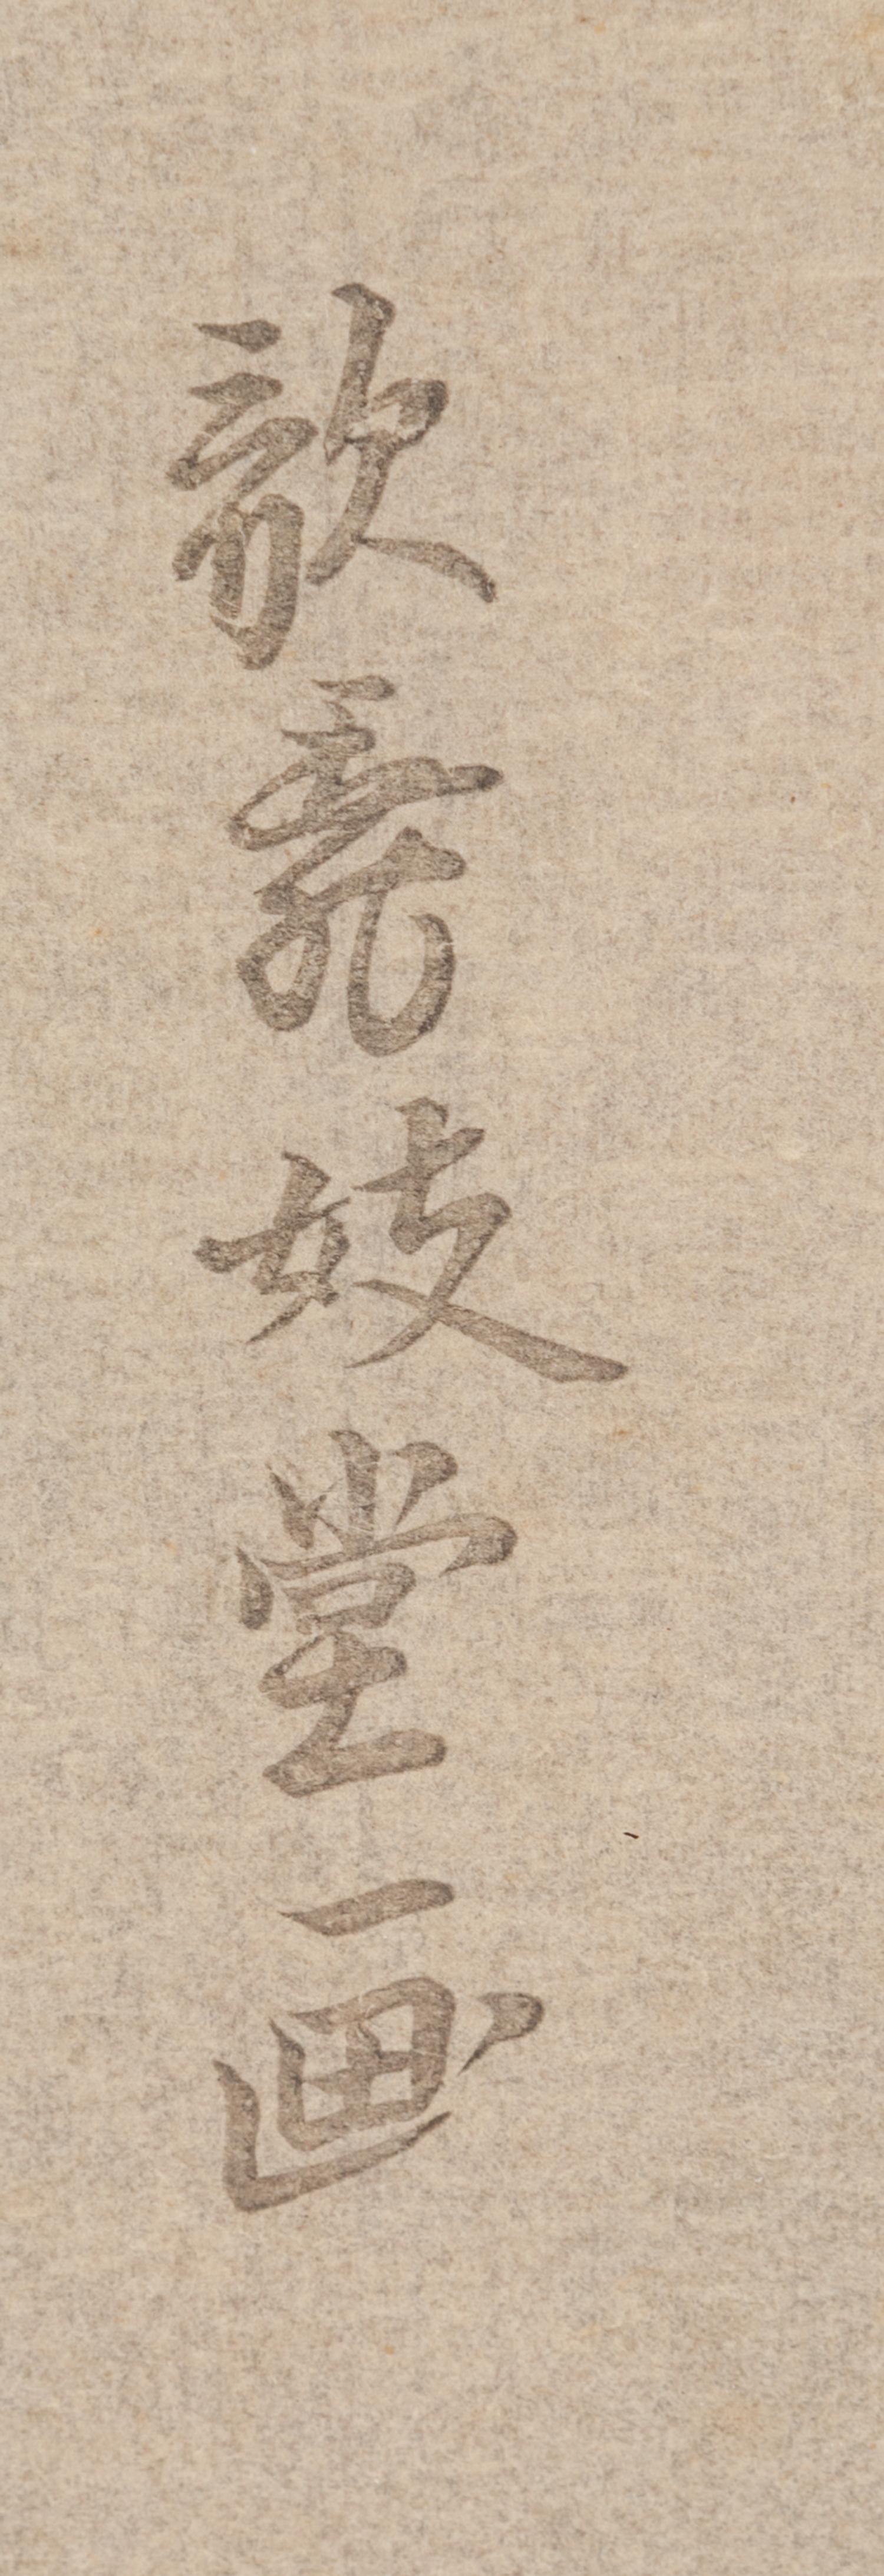 歌舞妓堂画